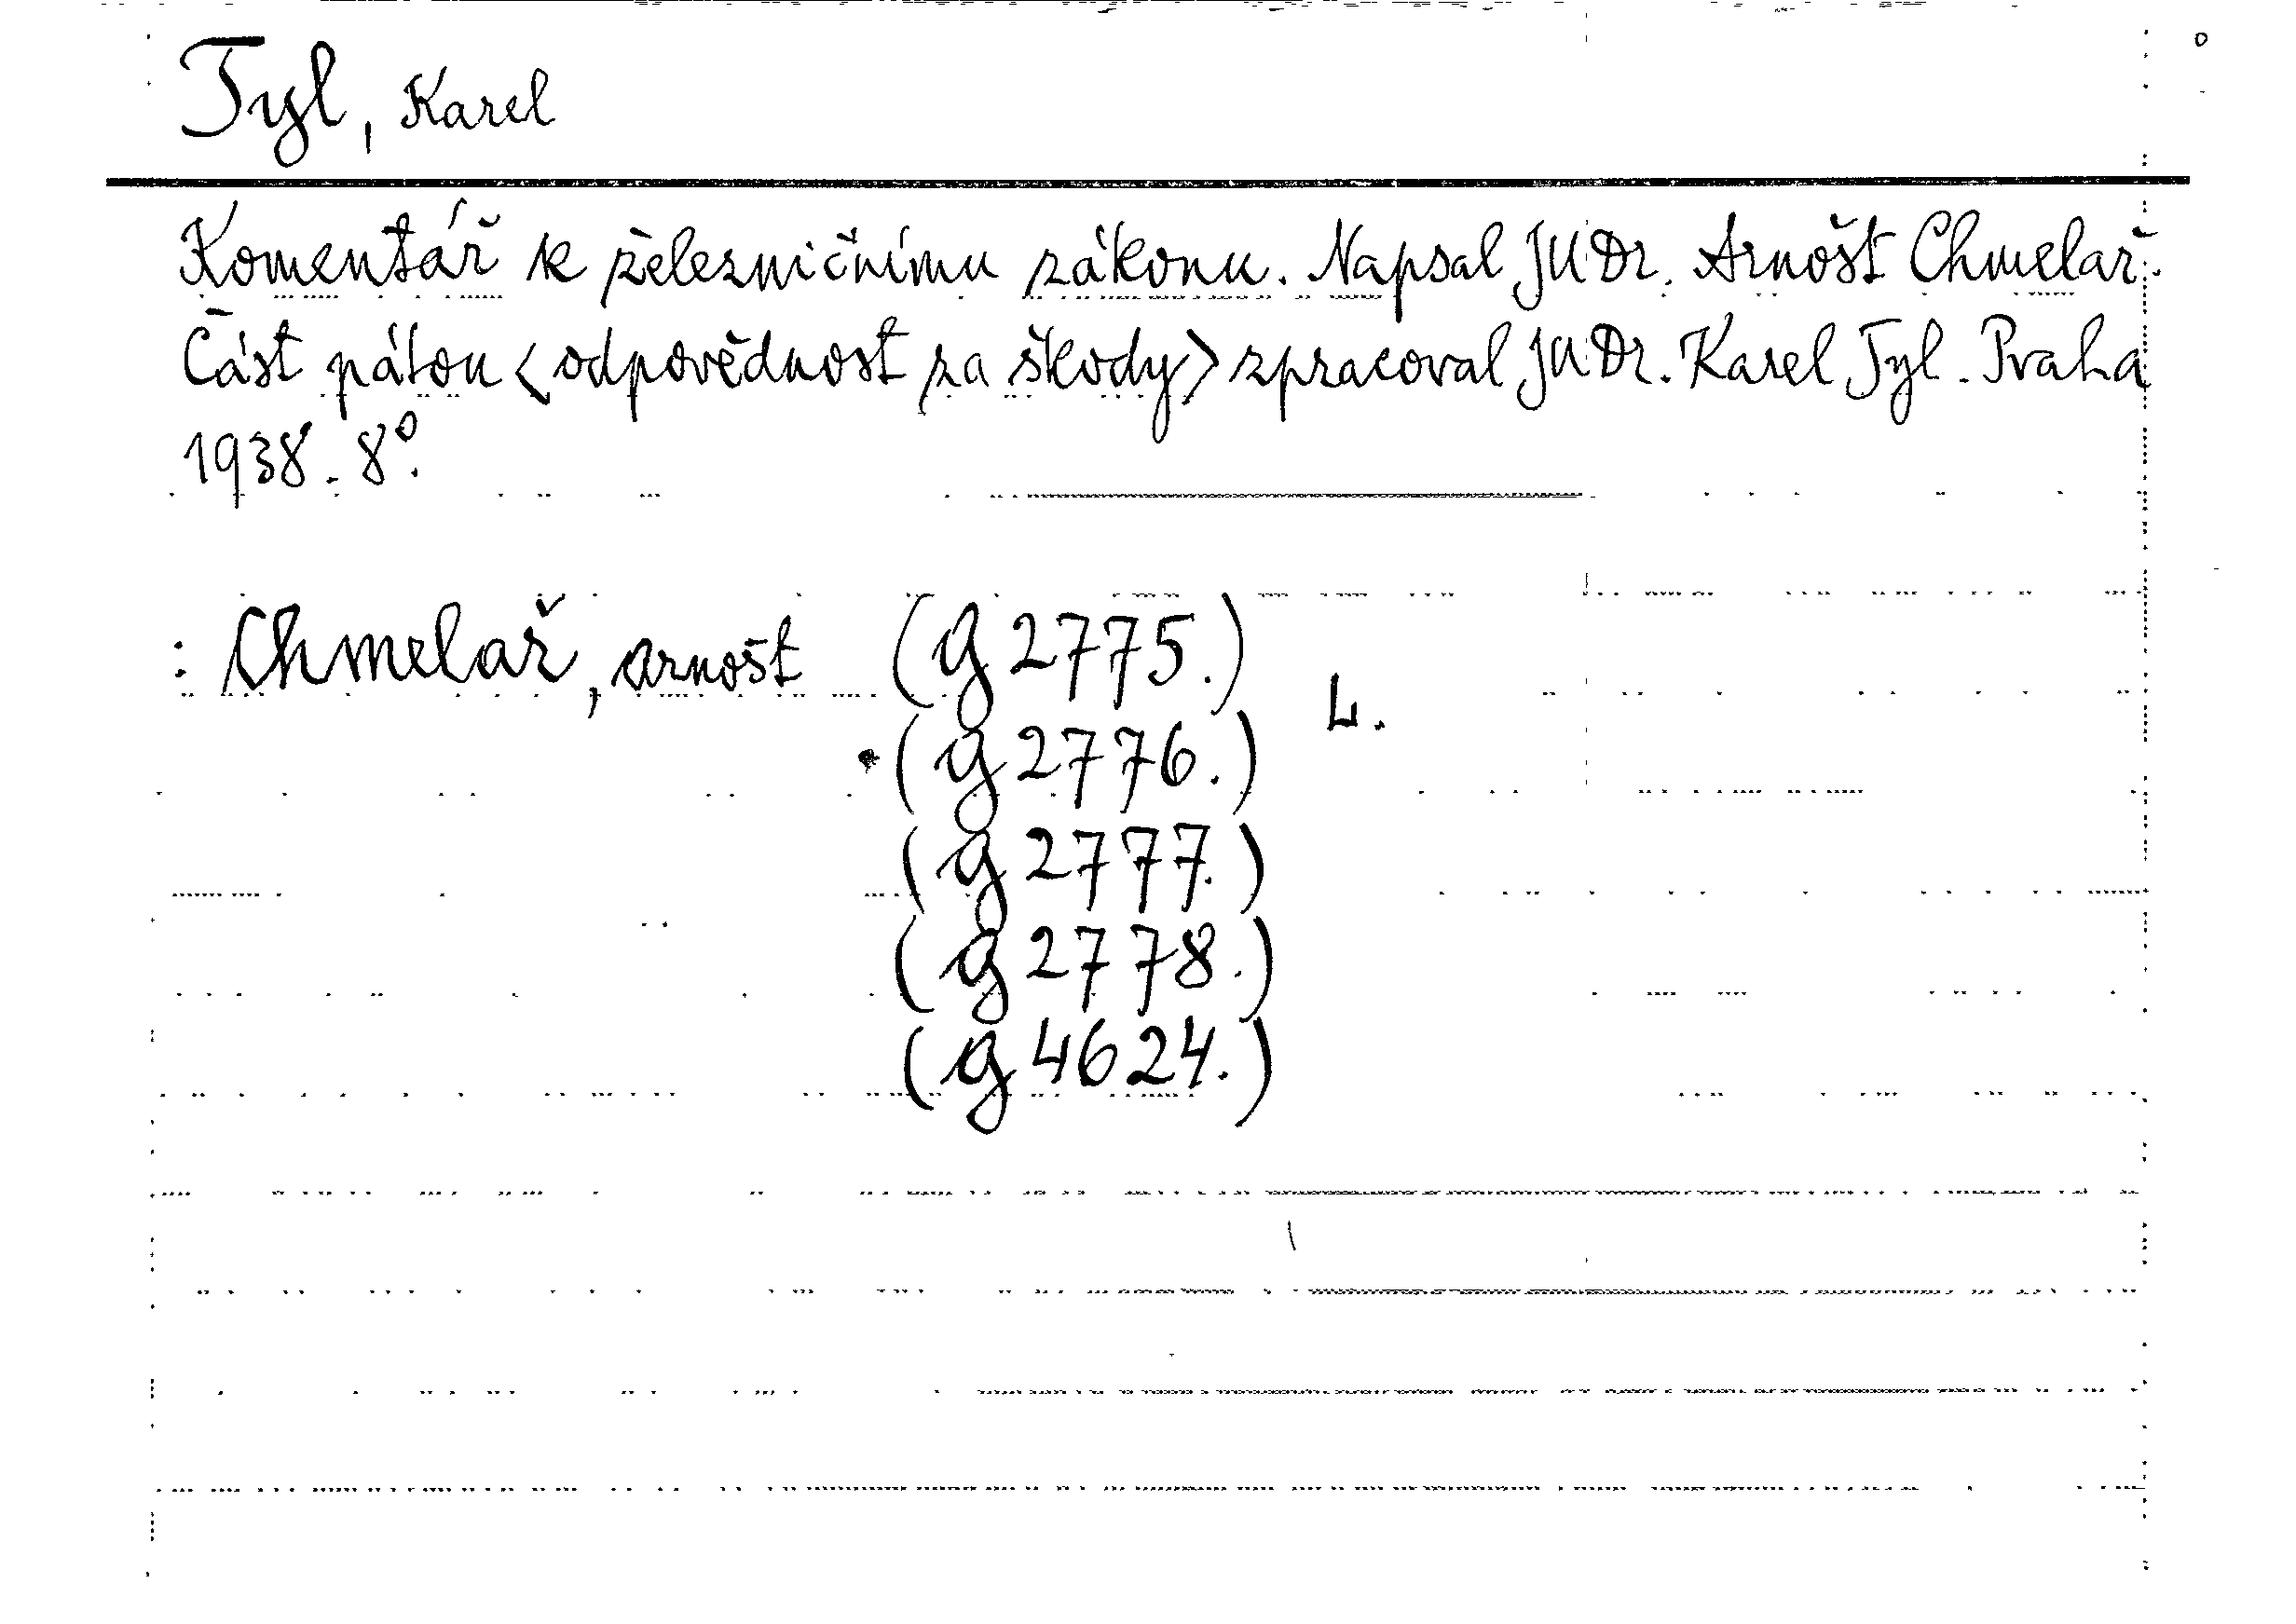 Tyl, Karel
Komentář k železničnímu zákonu. Napsal JUDr. Arnošt Chmelař.
Část pátou <odpovědnost za škody> zpracoval JUDr. Karel Tyl. Praha
1938. 8°.
: Chmelař, Arnošt (g 2775.)
L.
(g 2776.)
(g 2777.)
(g 2778.)
(g 4624.)